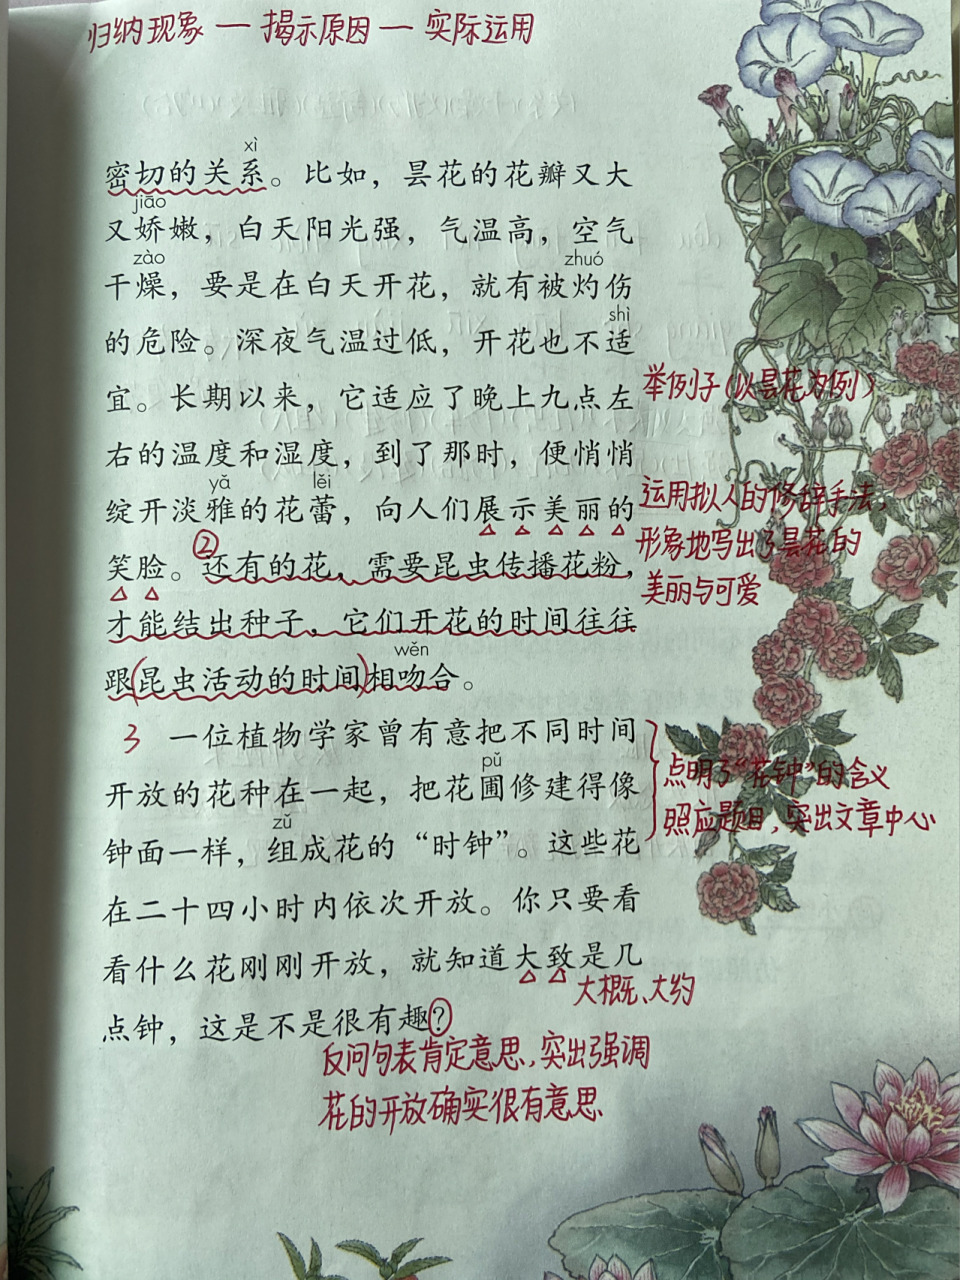 归纳现象—揭示原因—实际运用
xì
密切的关系。比如，昙花的花瓣又大
jiāo
又娇嫩，白天阳光强，气温高，空气
zào zhuó
干燥，要是在白天开花，就有被灼伤
shì
的危险。深夜气温过低，开花也不适
宜。长期以来，它适应了晚上九点左
举例子（以昙花为例）
右的温度和湿度，到了那时，便悄悄
yǎ lěi
绽开淡雅的花蕾，向人们展示美丽的
运用拟人的修辞手法，
形象地写出了昙花的
美丽与可爱
笑脸。②还有的花，需要昆虫传播花粉，
才能结出种子，它们开花的时间往往
wěn
跟(昆虫活动的时间)相吻合。
3 一位植物学家曾有意把不同时间
pǔ
开放的花种在一起，把花圃修建得像
点明了“花钟”的含义
照应题目，突出文章中心
zǔ
钟面一样，组成花的“时钟”。这些花
在二十四小时内依次开放。你只要看
看什么花刚刚开放，就知道大致是几
大概、大约
点钟，这是不是很有趣？
反问句表肯定意思，突出强调
花的开放确实很有意思